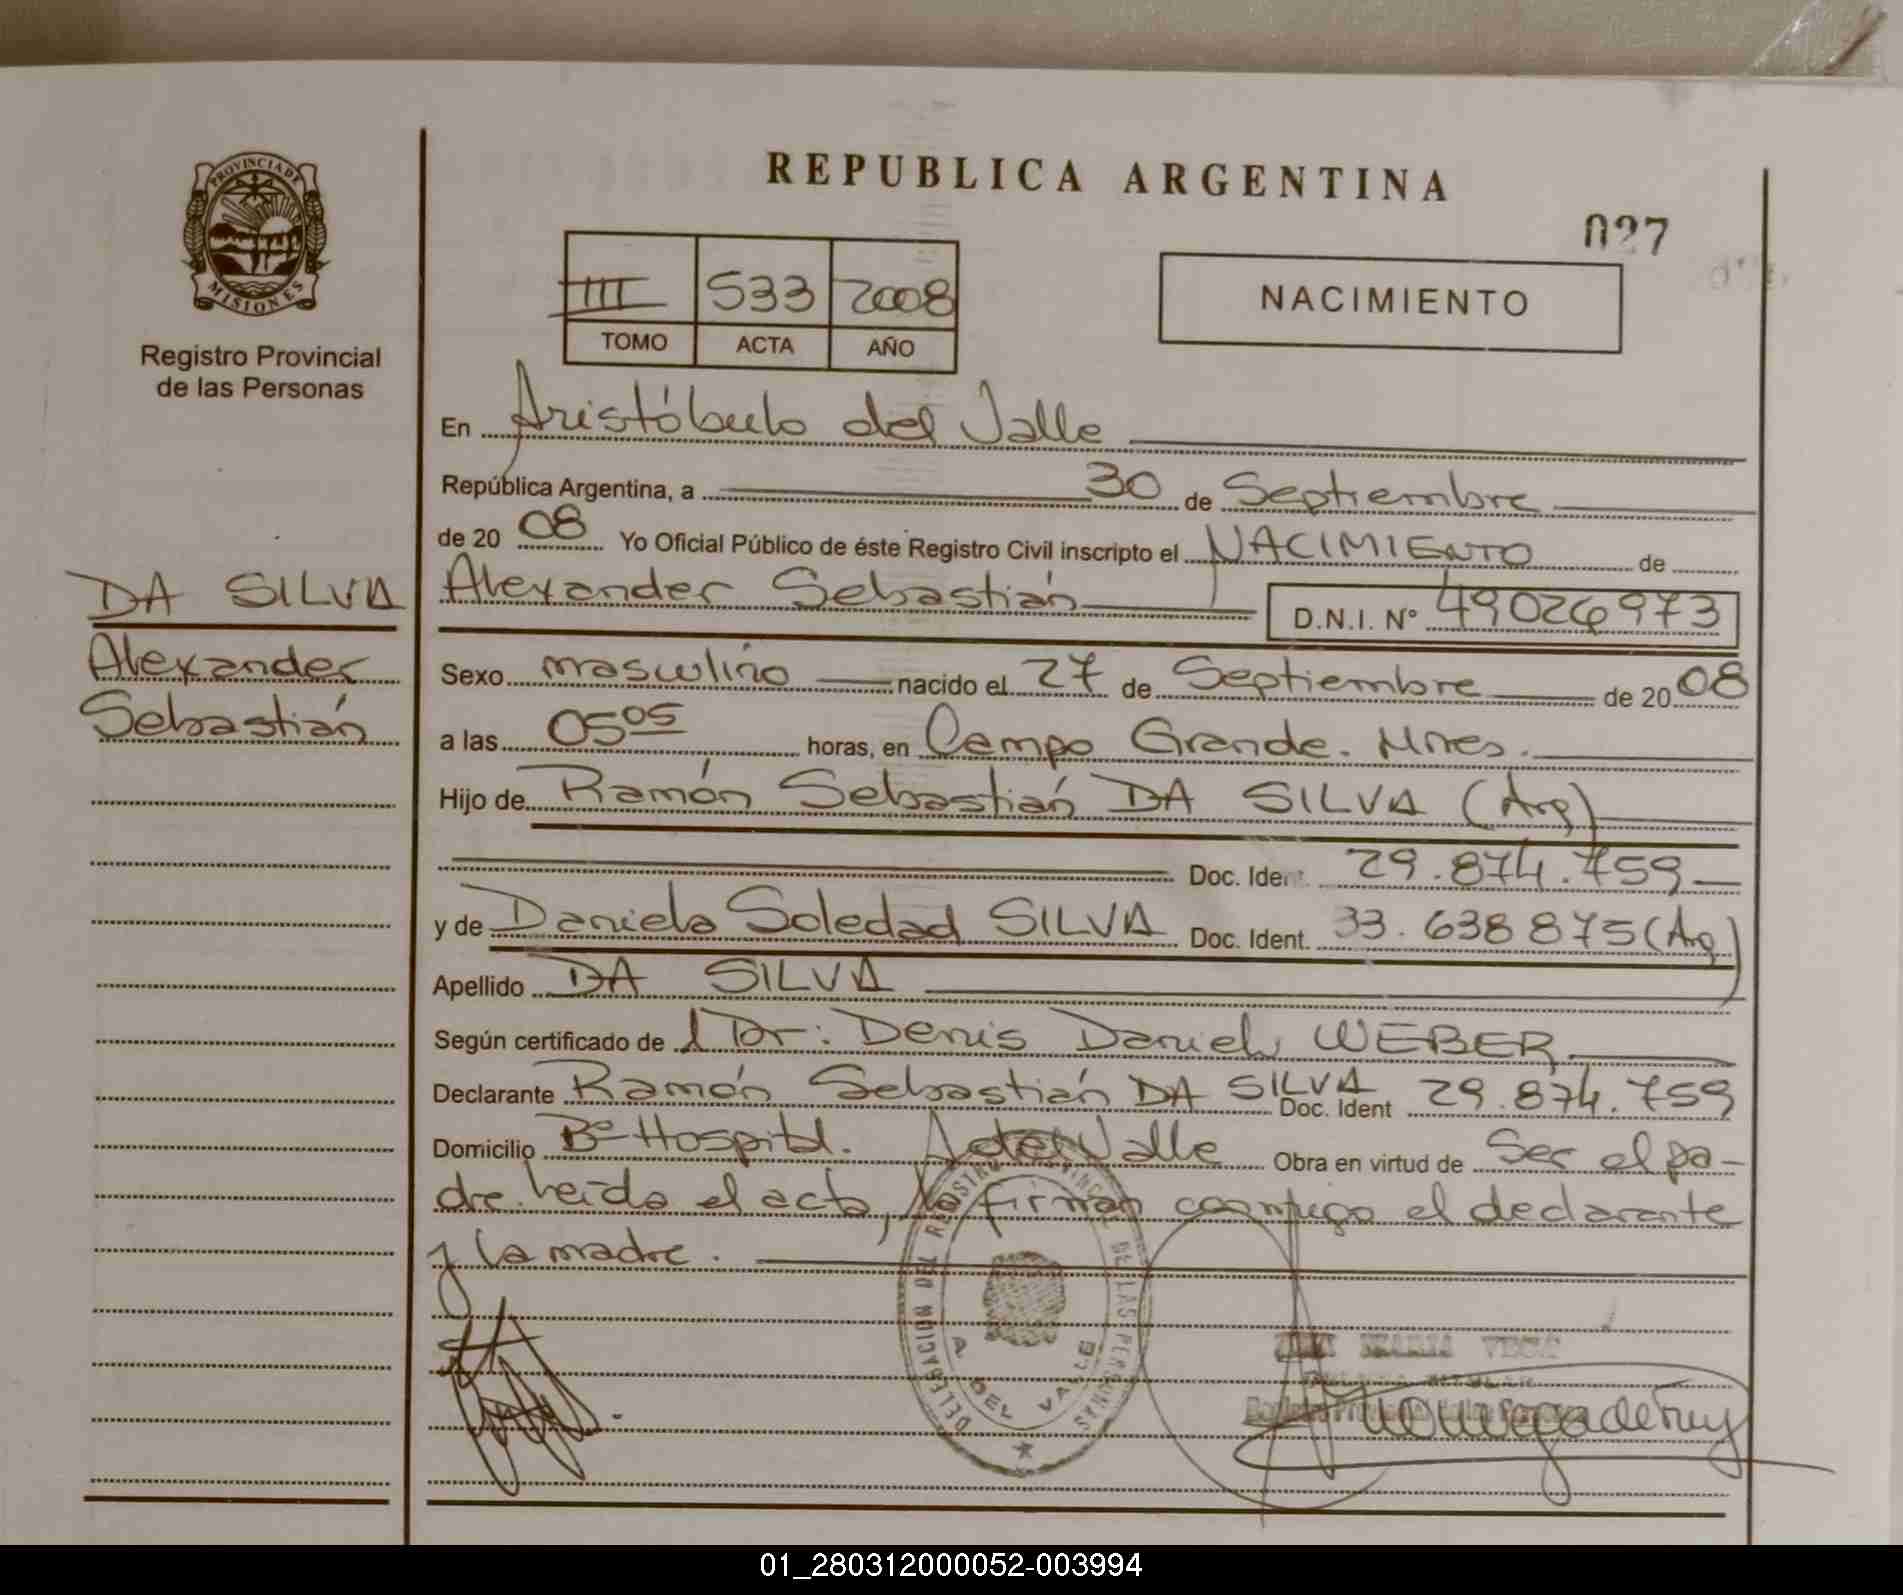 REPUBLICA ARGENTINA
027
PROVINCIA DE MISIONES
Registro Provincial
de las Personas
III 533 2008
TOMO ACTA AÑO
NACIMIENTO
En Aristóbulo del Valle
República Argentina, a 30 de Septiembre
de 20 08 Yo Oficial Público de éste Registro Civil inscripto el NACIMIENTO de
Alexander Sebastián D.N.I. Nº 49026973
DA SILVA
Alexander
Sebastián
Sexo masculino nacido el 27 de Septiembre de 20 08
a las 05 05 horas, en Campo Grande. Mnes.
Hijo de Ramón Sebastián DA SILVA (Arg)
Doc. Ident. 29.874.759
y de Daniela Soledad SILVA Doc. Ident. 33.638875 (Arg)
Apellido DA SILVA
Según certificado de l Dr: Denis Daniel WEBER
Declarante Ramón Sebastián DA SILVA Doc. Ident 29.874.759
Domicilio Bº Hospital. A del Valle Obra en virtud de Ser el pa-
dre. Leída el acta, la firman conmigo el declarante
y la madre.
DELEGACION DEL REGISTRO PROVINCIAL DE LAS PERSONAS
A. DEL VALLE
MARIA
01_280312000052-003994